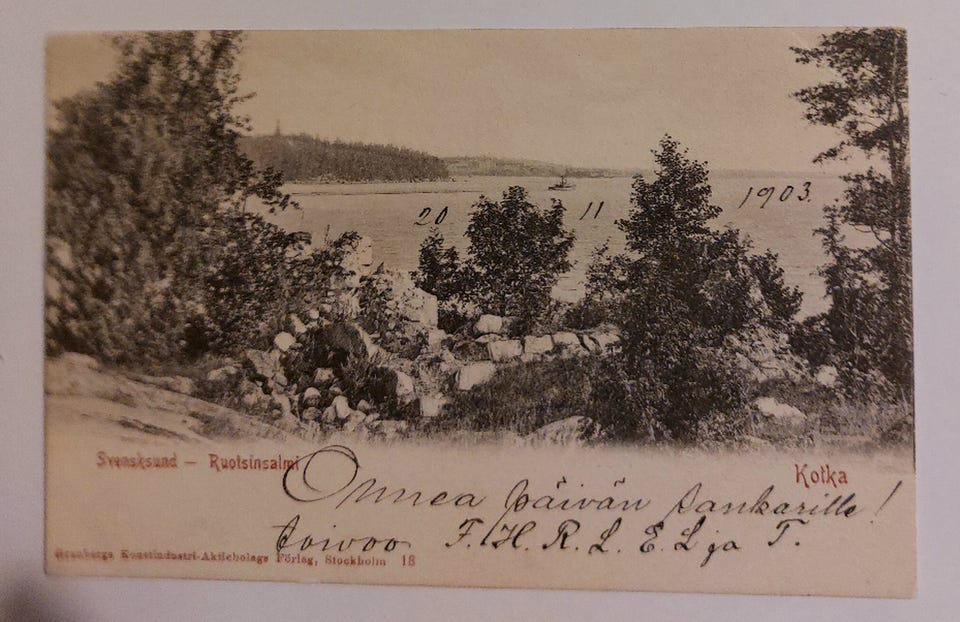 20 11 1903.
Svensksund — Ruotsinsalmi
Kotka
Onnea päivän sankarille!
toivoo F. H. R. L. E. L ja T.
Granbergs Konstindustri-Aktiebolags Förlag, Stockholm 18